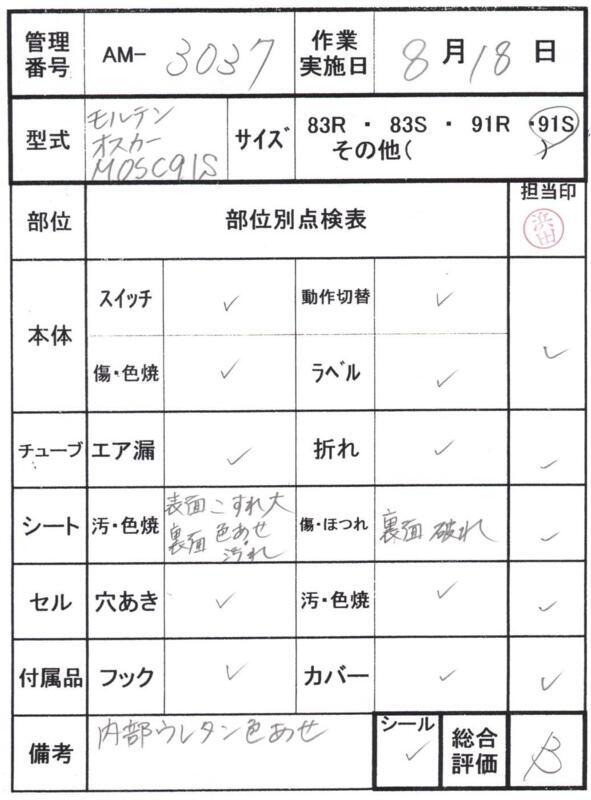 管理番号 AM- 3037 作業実施日 8月18日
型式 モルテン オスカー MOSC91S サイズ 83R ・ 83S ・ 91R ・ 91S
その他( )
部位 部位別点検表 担当印 浜田
本体 スイッチ ✓ 動作切替 ✓ ✓
傷・色焼 ✓ ラベル ✓
チューブ エア漏 ✓ 折れ ✓ ✓
シート 汚・色焼 表面こすれ大 裏面 色あせ・汚れ 傷・ほつれ 裏面 破れ ✓
セル 穴あき ✓ 汚・色焼 ✓ ✓
付属品 フック ✓ カバー ✓ ✓
備考 内部ウレタン色あせ シール ✓ 総合評価 B